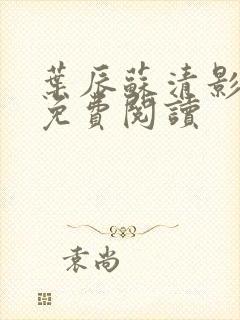 葉辰蘇清影
免費閱讀
袁尚